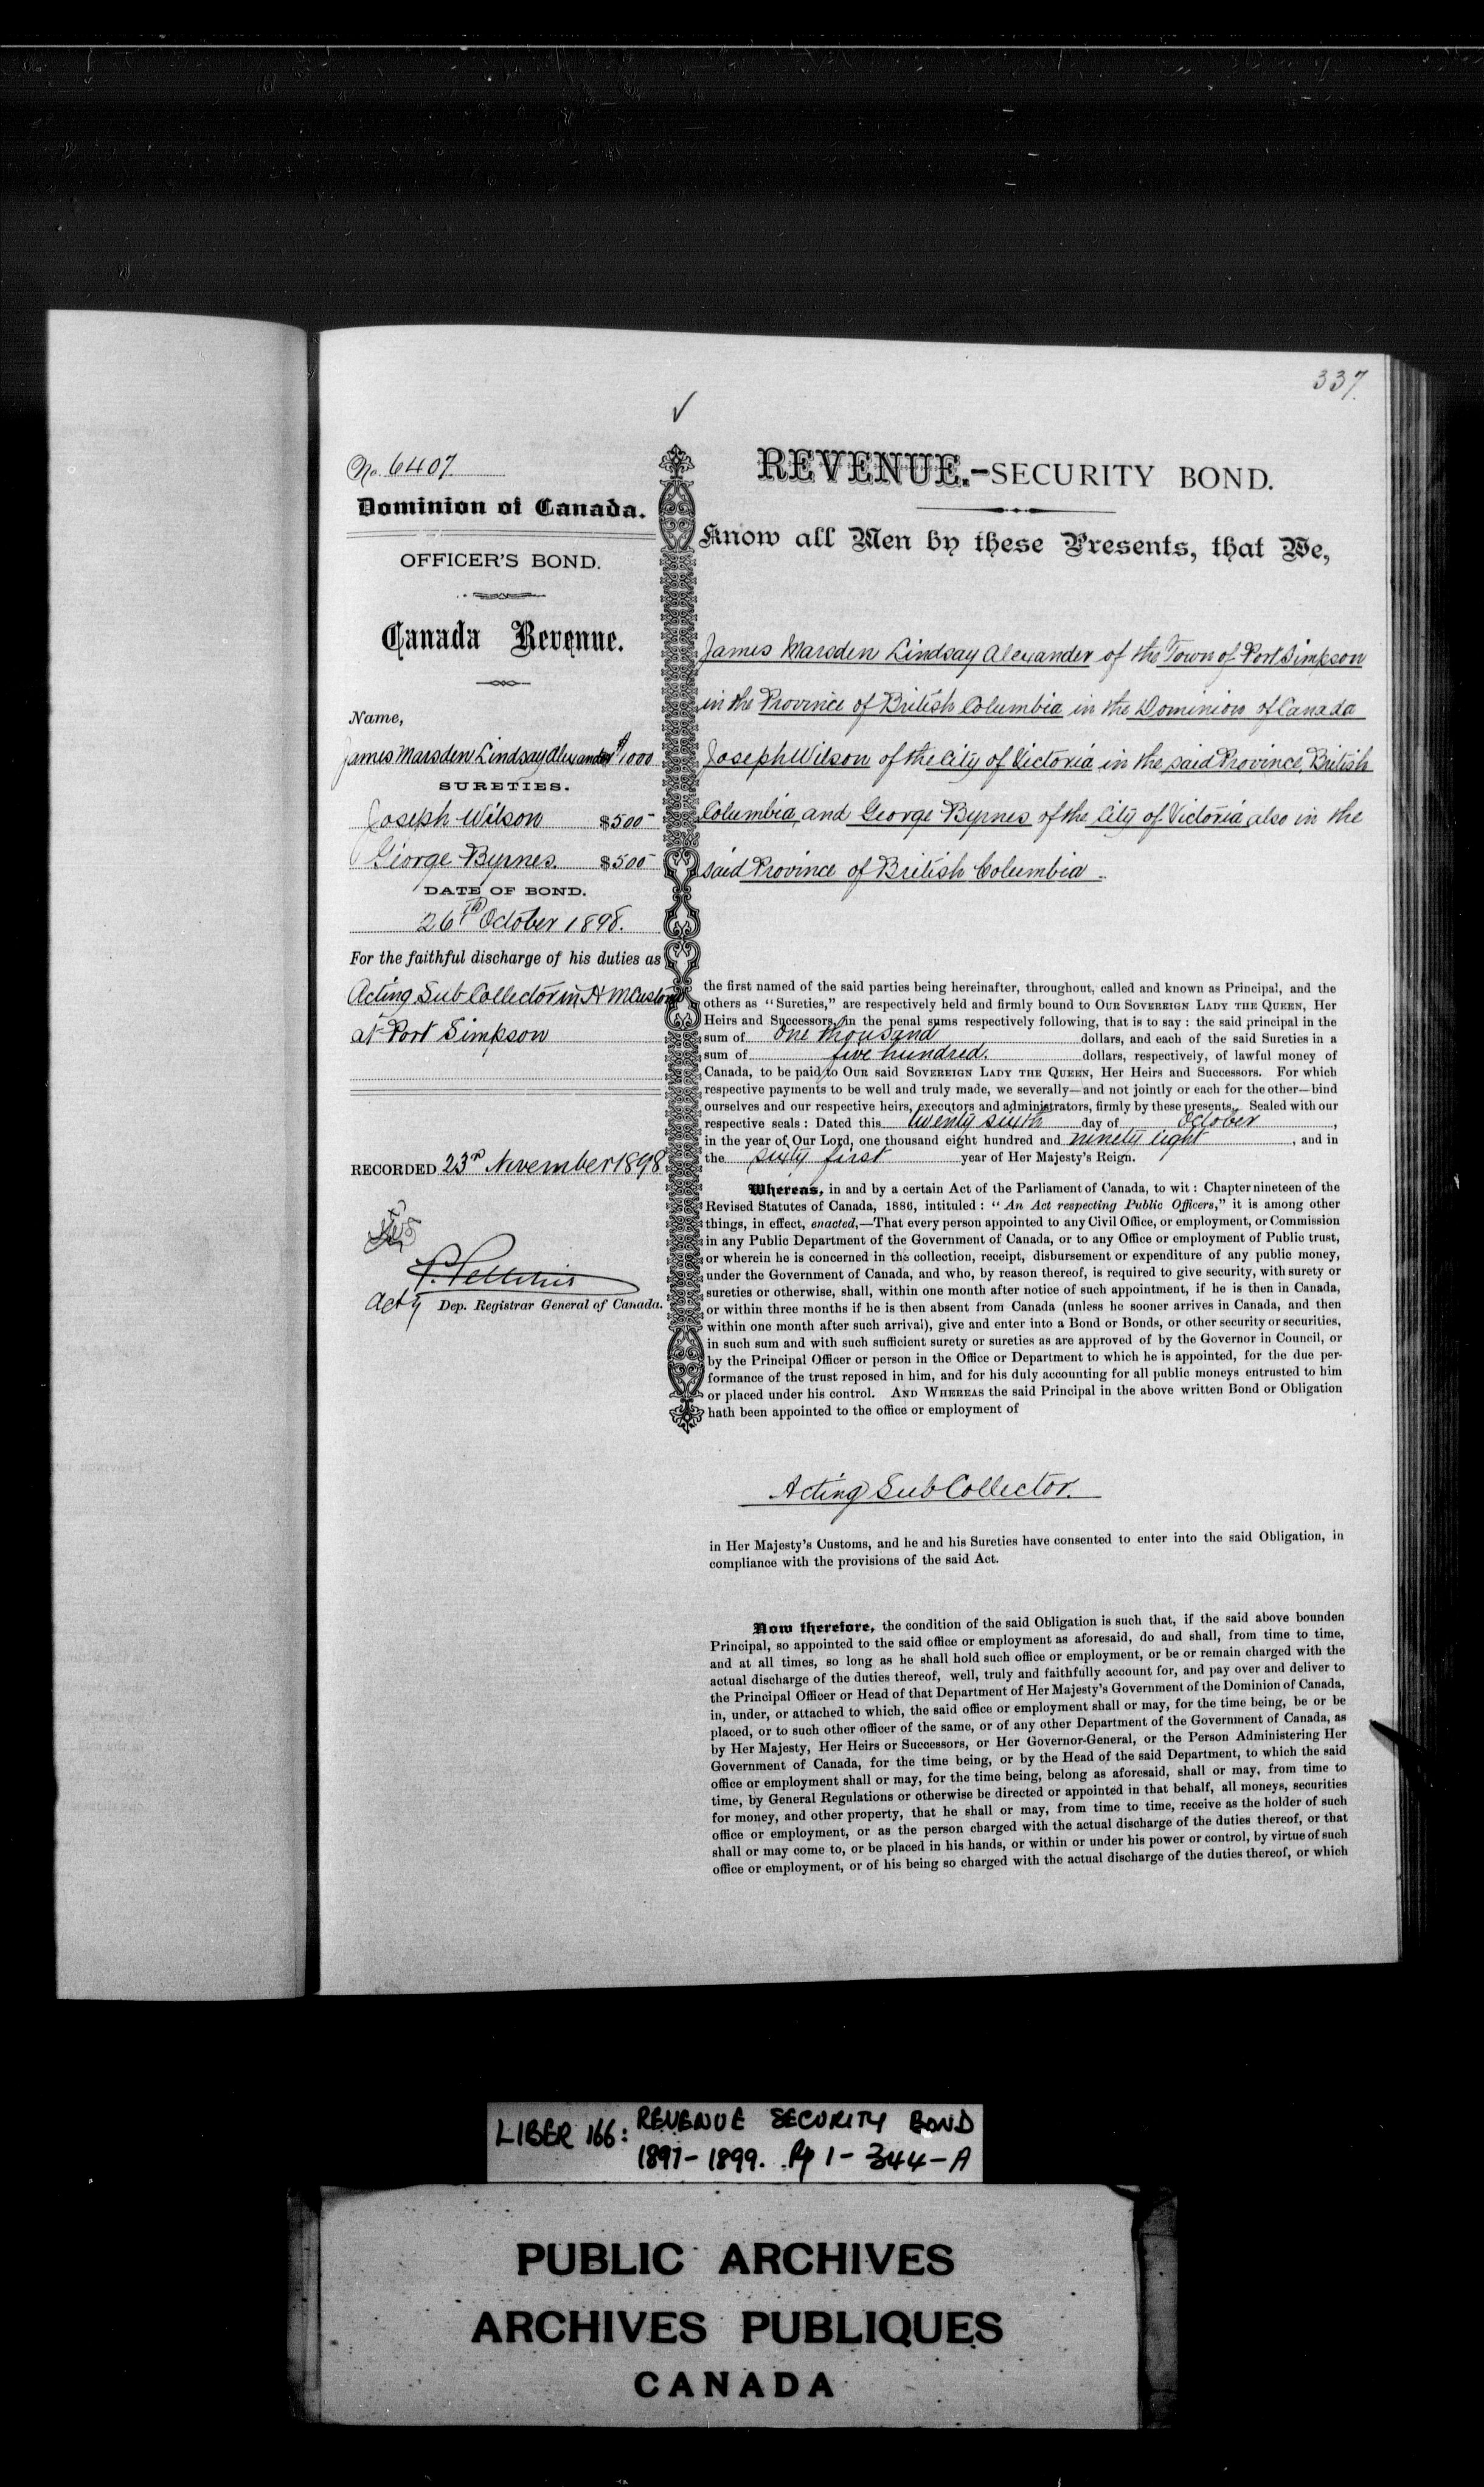 337.
✓
No. 6407
Dominion of Canada.
OFFICER'S BOND.
Canada Revenue.
Name,
James Marsden Lindsay Alexander $1000
SURETIES.
Joseph Wilson $500
George Byrnes. $500
DATE OF BOND.
26th October 1898.
For the faithful discharge of his duties as
Acting Sub Collector in H M Customs
at Port Simpson
RECORDED 23rd November 1898
Actg Dep. Registrar General of Canada.
REVENUE.-SECURITY BOND.
Know all Men by these Presents, that We,
James Marsden Lindsay Alexander of the Town of Port Simpson
in the Province of British Columbia in the Dominion of Canada
Joseph Wilson of the City of Victoria in the said Province, British
Columbia, and George Byrnes of the City of Victoria, also in the
said Province of British Columbia.
the first named of the said parties being hereinafter, throughout, called and known as Principal, and the
others as "Sureties," are respectively held and firmly bound to OUR SOVEREIGN LADY THE QUEEN, Her
Heirs and Successors, in the penal sums respectively following, that is to say : the said principal in the
sum of one thousand dollars, and each of the said Sureties in a
sum of five hundred. dollars, respectively, of lawful money of
Canada, to be paid to OUR said SOVEREIGN LADY THE QUEEN, Her Heirs and Successors. For which
respective payments to be well and truly made, we severally—and not jointly or each for the other—bind
ourselves and our respective heirs, executors and administrators, firmly by these presents. Sealed with our
respective seals : Dated this twenty sixth day of October,
in the year of Our Lord, one thousand eight hundred and ninety eight, and in
the sixty first year of Her Majesty's Reign.
Whereas, in and by a certain Act of the Parliament of Canada, to wit : Chapter nineteen of the
Revised Statutes of Canada, 1886, intituled : "An Act respecting Public Officers," it is among other
things, in effect, enacted,—That every person appointed to any Civil Office, or employment, or Commission
in any Public Department of the Government of Canada, or to any Office or employment of Public trust,
or wherein he is concerned in the collection, receipt, disbursement or expenditure of any public money,
under the Government of Canada, and who, by reason thereof, is required to give security, with surety or
sureties or otherwise, shall, within one month after notice of such appointment, if he is then in Canada,
or within three months if he is then absent from Canada (unless he sooner arrives in Canada, and then
within one month after such arrival), give and enter into a Bond or Bonds, or other security or securities,
in such sum and with such sufficient surety or sureties as are approved of by the Governor in Council, or
by the Principal Officer or person in the Office or Department to which he is appointed, for the due per-
formance of the trust reposed in him, and for his duly accounting for all public moneys entrusted to him
or placed under his control. AND WHEREAS the said Principal in the above written Bond or Obligation
hath been appointed to the office or employment of
Acting Sub Collector.
in Her Majesty's Customs, and he and his Sureties have consented to enter into the said Obligation, in
compliance with the provisions of the said Act.
Now therefore, the condition of the said Obligation is such that, if the said above bounden
Principal, so appointed to the said office or employment as aforesaid, do and shall, from time to time,
and at all times, so long as he shall hold such office or employment, or be or remain charged with the
actual discharge of the duties thereof, well, truly and faithfully account for, and pay over and deliver to
the Principal Officer or Head of that Department of Her Majesty's Government of the Dominion of Canada,
in, under, or attached to which, the said office or employment shall or may, for the time being, be or be
placed, or to such other officer of the same, or of any other Department of the Government of Canada, as
by Her Majesty, Her Heirs or Successors, or Her Governor-General, or the Person Administering Her
Government of Canada, for the time being, or by the Head of the said Department, to which the said
office or employment shall or may, for the time being, belong as aforesaid, shall or may, from time to
time, by General Regulations or otherwise be directed or appointed in that behalf, all moneys, securities
for money, and other property, that he shall or may, from time to time, receive as the holder of such
office or employment, or as the person charged with the actual discharge of the duties thereof, or that
shall or may come to, or be placed in his hands, or within or under his power or control, by virtue of such
office or employment, or of his being so charged with the actual discharge of the duties thereof, or which
LIBER 166: REVENUE SECURITY BOND
1897-1899. Pp 1-344-A
PUBLIC ARCHIVES
ARCHIVES PUBLIQUES
CANADA